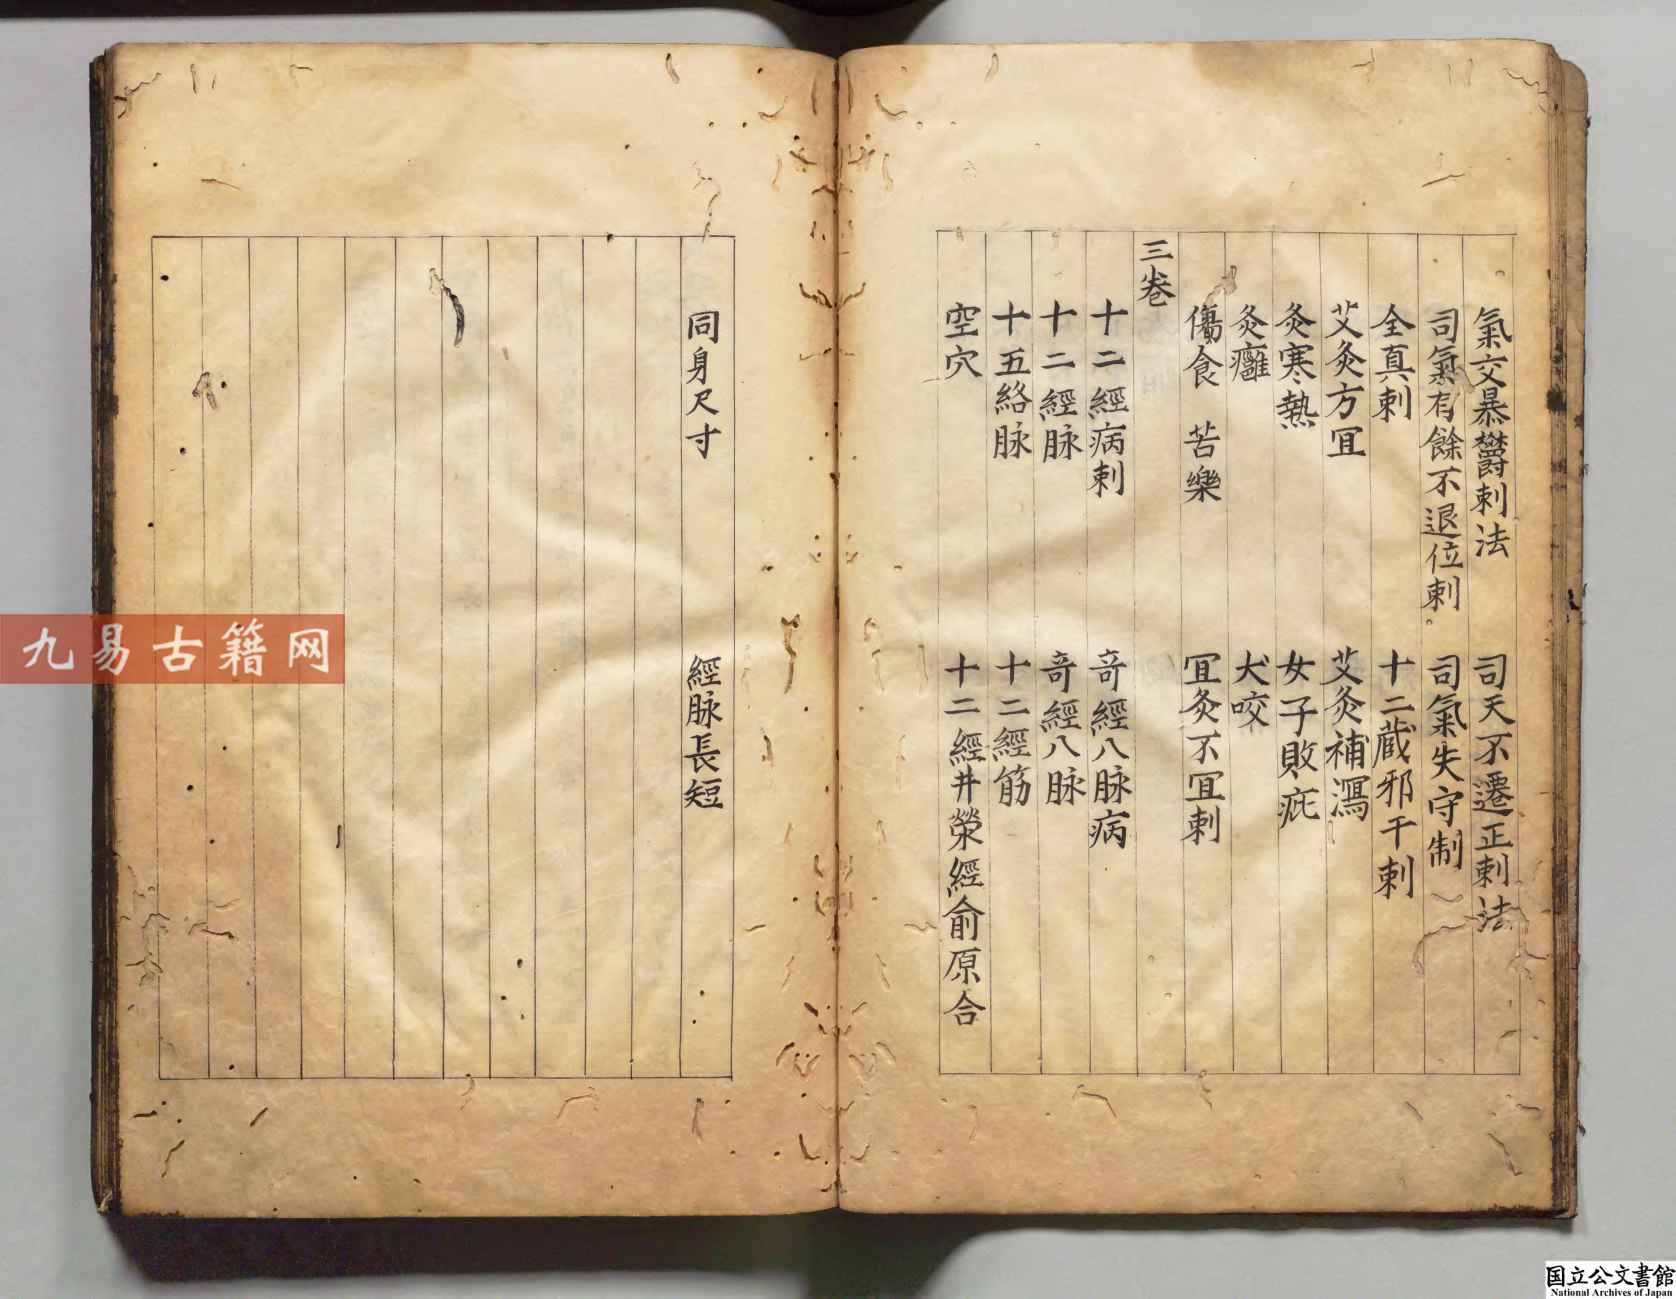 氣交暴欝刺法 司天不遷正刺法
司氣有餘不退位刺 司氣失守制
全真刺 十二蔵邪干刺
艾灸方冝 艾灸補瀉
灸寒熱 女子敗疵
灸癰 犬咬
傷食 苦樂 冝灸不冝刺
三巻
十二經病刺 竒經八脉病
十二經脉 竒經八脉
十五絡脉 十二經筋
空穴 十二經井滎經俞原合
同身尺寸 經脉長短
九易古籍网
国立公文書館
National Archives of Japan